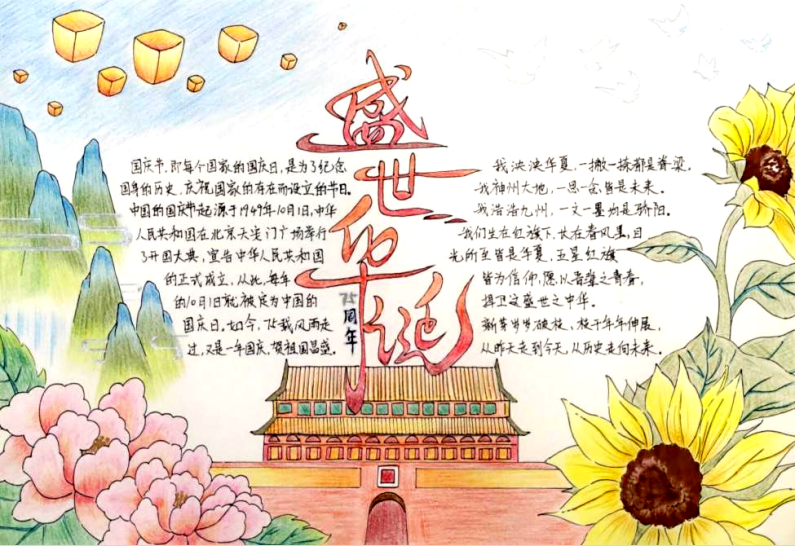 盛世华诞
75周年
国庆节,即每个国家的国庆日,是为了纪念
国年的历史,庆祝国家的存在而设立的节日。
中国的国庆节起源于1949年10月1日,中华
人民共和国在北京天安门广场举行
了开国大典,宣告中华人民共和国
的正式成立,从此,每年
的10月1日就被定为中国的
国庆日,如今,75载风雨走
过,又是一年国庆,贺祖国昌盛。
我泱泱华夏,一撇一捺都是脊梁。
我神州大地,一思一念皆是未来。
我浩浩九州,一文一墨均是骄阳。
我们生在红旗下,长在春风里,目
光所至皆是华夏,五星红旗
皆为信仰,愿以吾辈之青春,
捍卫这盛世之中华。
新芽岁岁破枝,枝干年年伸展,
从昨天走到今天,从历史走向未来。